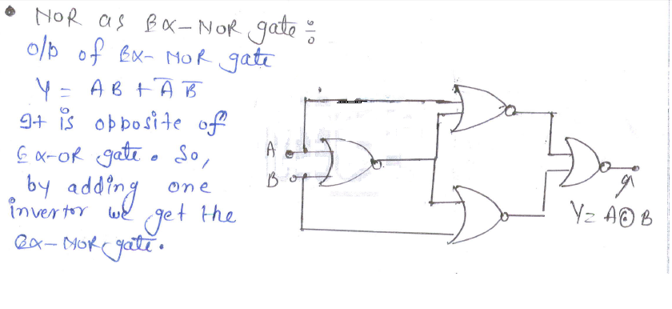 • NOR as EX-NOR gate :-
o/p of EX-NOR gate
Y = AB + A̅ B̅
It is opposite of
EX-OR gate. So,
by adding one
invertor we get the
EX-NOR gate.
A
B
Y = A⊙B